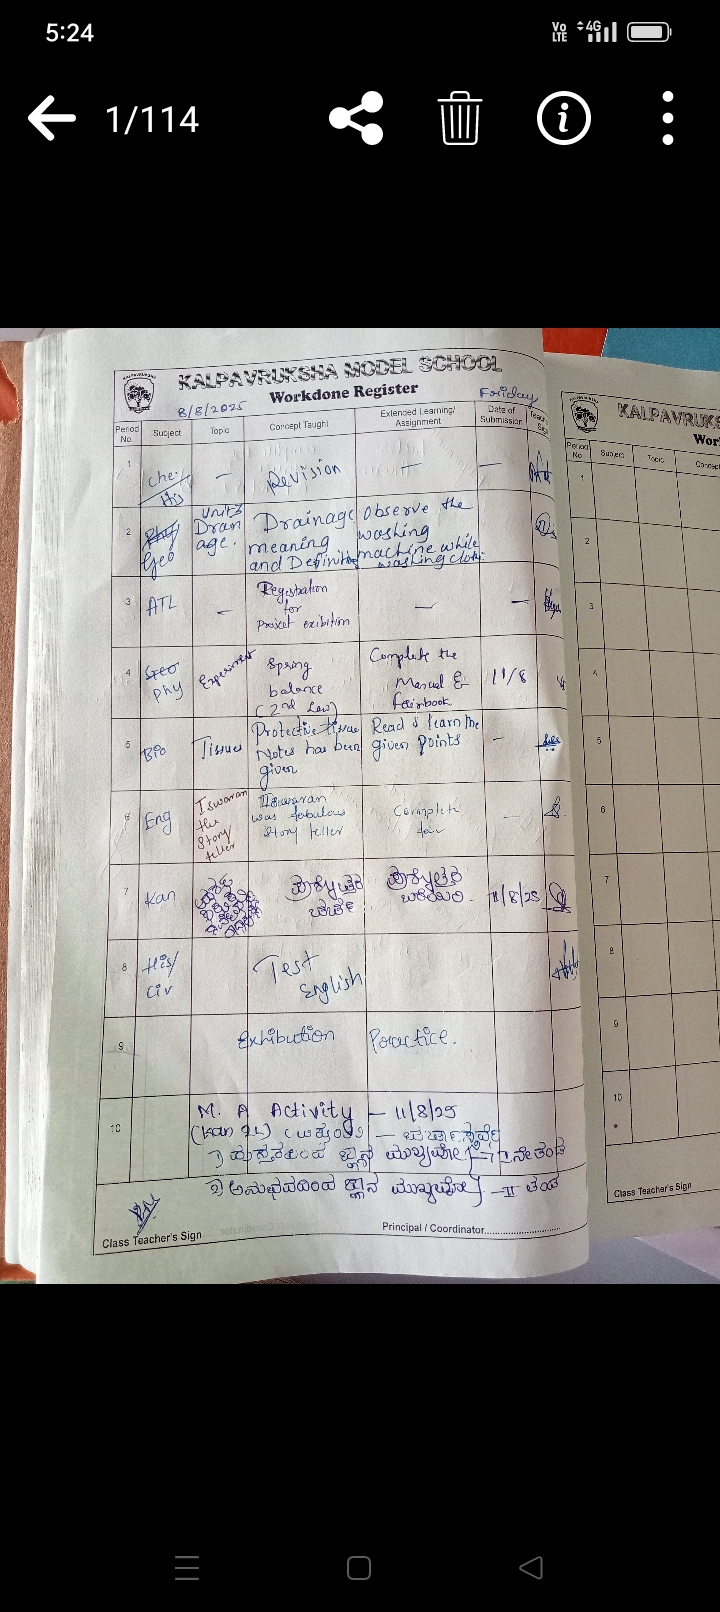 5:24
Vo LTE 4G
1/114
KALPAVRUKSHA MODEL SCHOOL
Workdone Register
8/8/2025
Friday
Period No.
Subject
Topic
Concept Taught
Extended Learning/ Assignment
Date of Submission
1
Che/
His
—
Revision
—
—
2
Phy
Geo
Unit3
Drainage.
Drainage
meaning
and Definition
observe the
washing
machine while
washing cloth.
3
ATL
—
Registration
for
Project exibition
—
—
4
Geo
Phy
Experiment
Spring
balance
(2nd Law)
Complete the
Manual &
Fairbook
11/8
5
Bio
Tissues
Protective tissue
Notes has been
given
Read & learn the
given points
-
6
Eng
Iswaran
the
Story
teller
Iswaran
was fabulous
Story teller
Complete
fair
7
Kan
ಚರ್ಚೆ
11/8/25
8
His/
Civ
Test
English
9
Exhibution Practice.
10
M. A Activity – 11/8/25
(Kan 2L)
1)
2) ಅನುಭವದಿಂದ ಜ್ಞಾನ
– II ತಂಡ
Class Teacher's Sign
Principal / Coordinator
KALPAVRUKS
Wor
Period No
Subject
Topic
Concept
1
2
3
4
5
6
7
8
9
10
Class Teacher's Sign